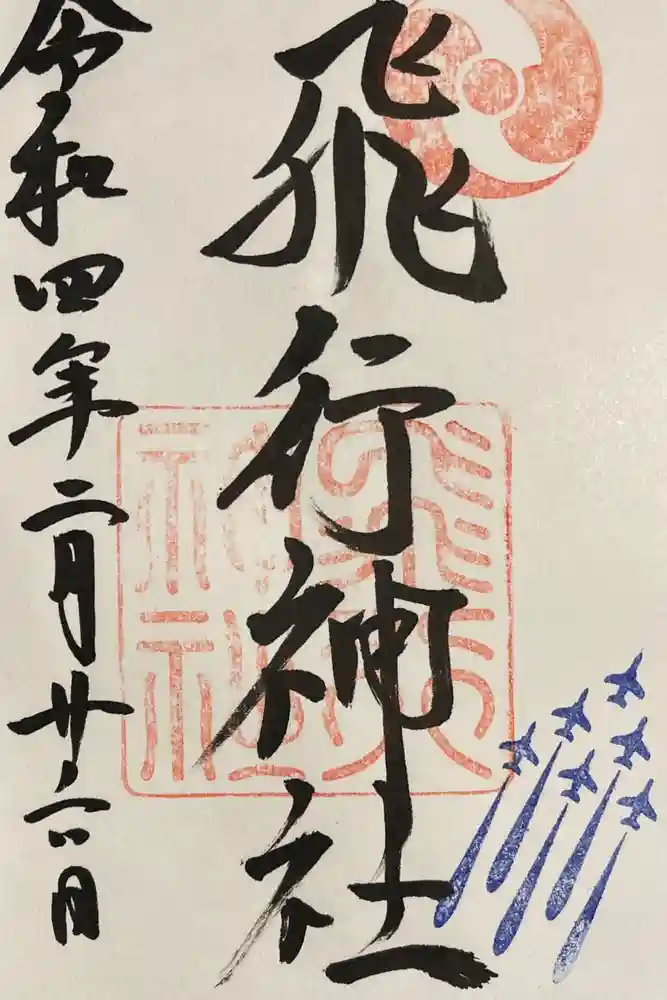 飛行神社
令和四年二月廿六日